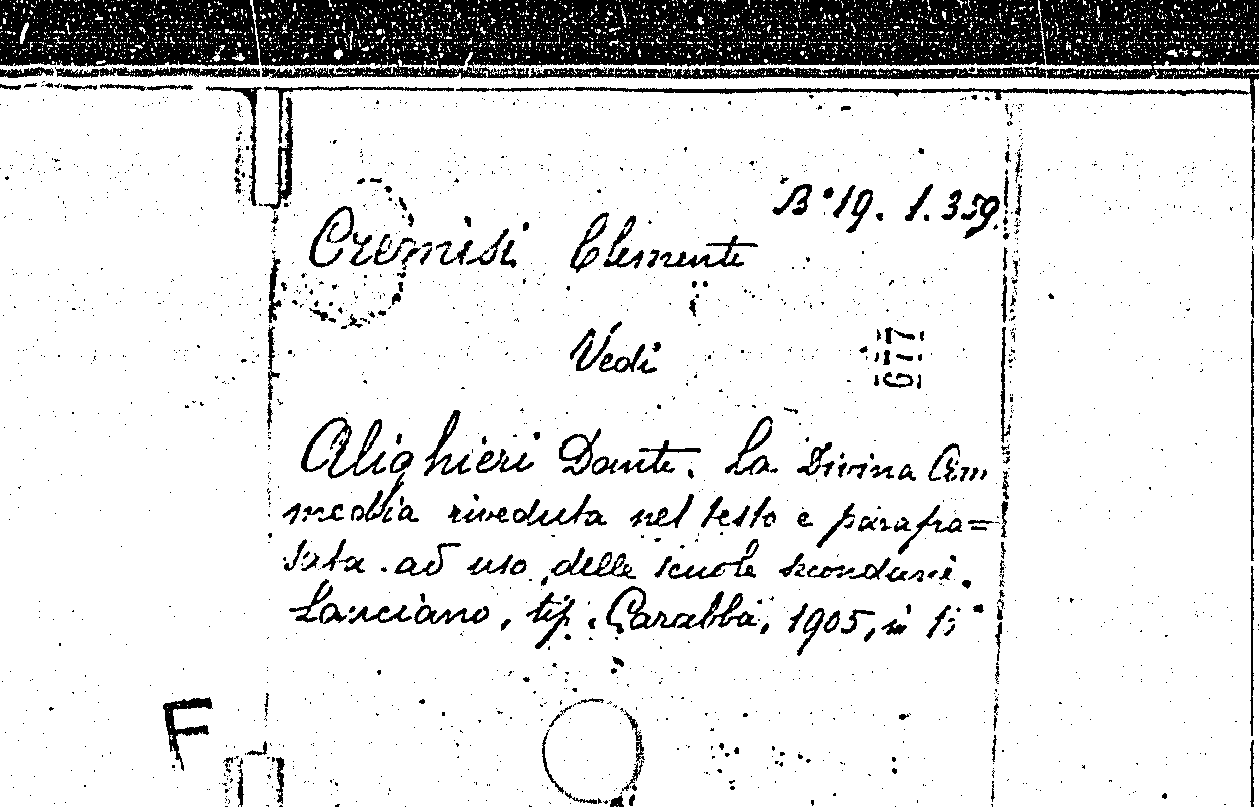 B° 19. 1. 359.
Cremisi Clemente
Vedi
677
Alighieri Dante. La Divina Com
media riveduta nel testo e parafra=
sata ad uso delle scuole secondarie.
Lanciano, tip. Carabba, 1905, in
F